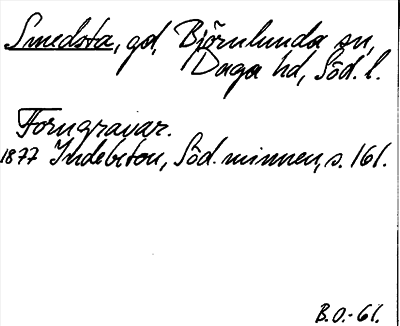 Smedsta, gd, Björnlunda sn,
Daga hd, Söd. l.
Forngravar.
1877 Indebetou, Söd. minnen, s. 161.
B.O.-61.